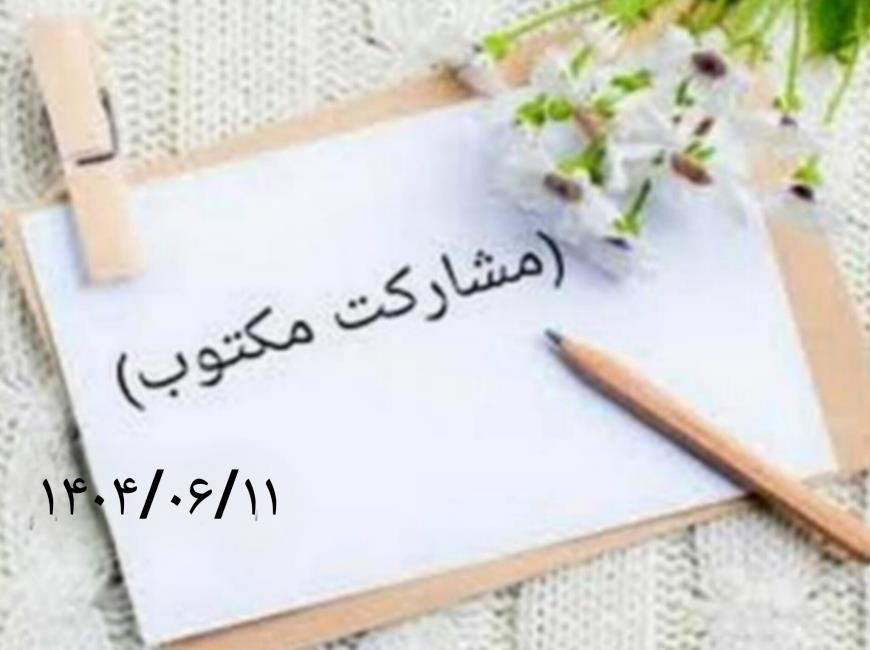 (مشارکت مکتوب)
۱۴۰۴/۰۶/۱۱